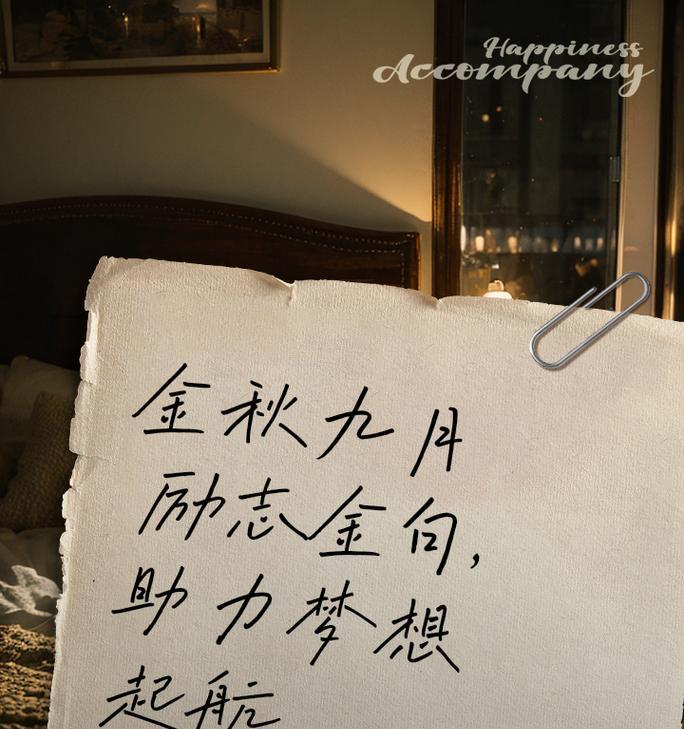 Happiness
Accompany
金秋九月
励志金句,
助力梦想
起航